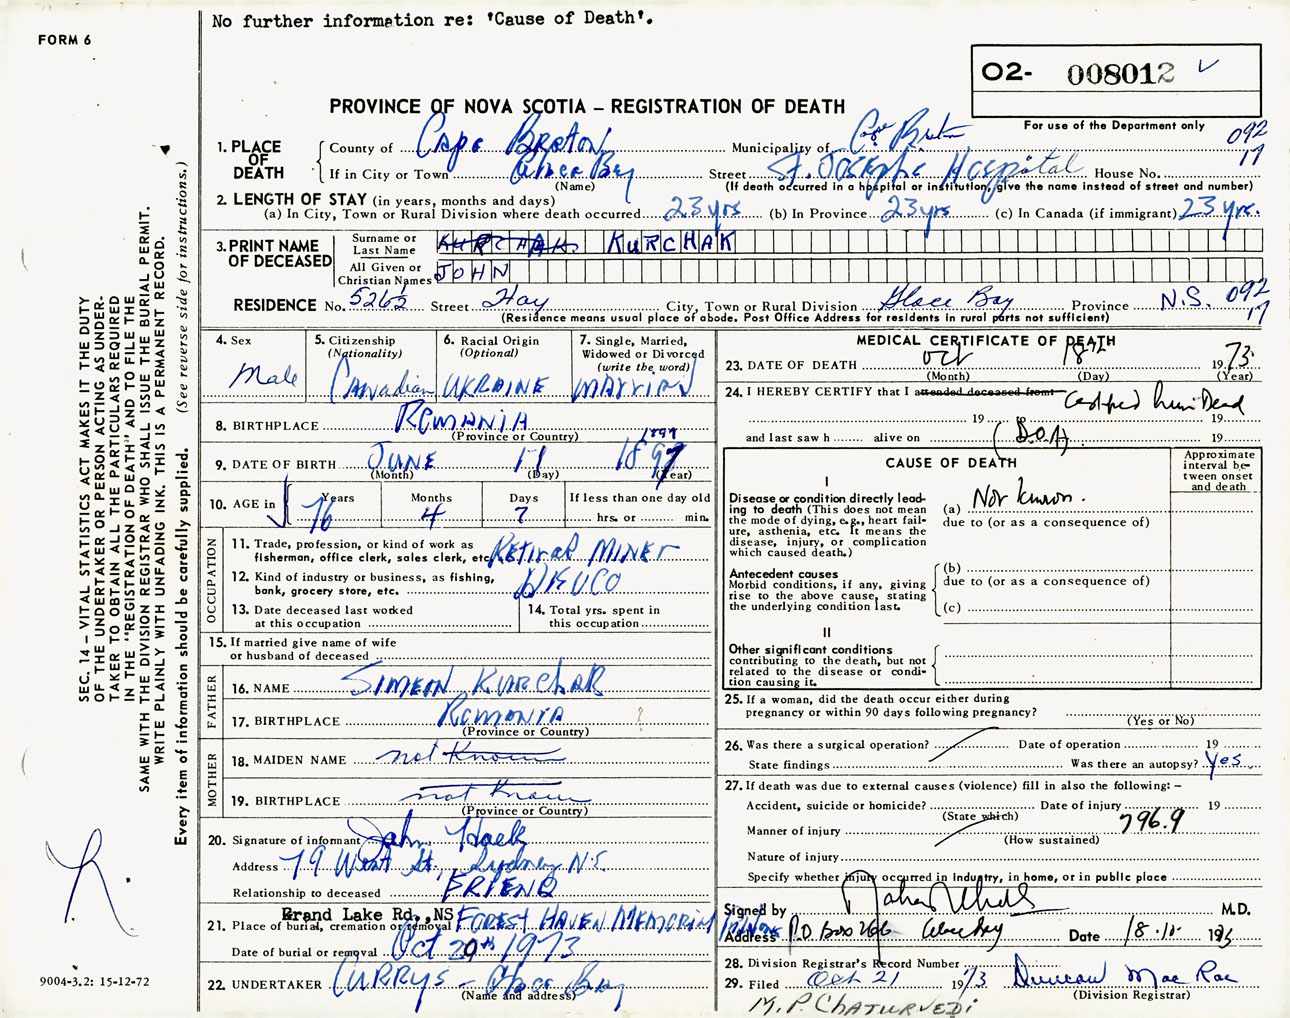 No further information re: 'Cause of Death'.
FORM 6
O2- 008012
PROVINCE OF NOVA SCOTIA – REGISTRATION OF DEATH
For use of the Department only
092
17
1. PLACE OF DEATH
County of Cape Breton Municipality of Cape Breton
If in City or Town Glace Bay Street St. Josephs Hospital House No.
(Name) (If death occurred in a hospital or institution, give the name instead of street and number)
2. LENGTH OF STAY (in years, months and days)
(a) In City, Town or Rural Division where death occurred 23 yrs (b) In Province 23 yrs (c) In Canada (if immigrant) 23 yrs.
3. PRINT NAME OF DECEASED
Surname or Last Name KURCHAK KURCHAK
All Given or Christian Names JOHN
RESIDENCE No. 5262 Street Hay City, Town or Rural Division Glace Bay Province N.S. 092
17
(Residence means usual place of abode. Post Office Address for residents in rural parts not sufficient)
4. Sex
Male
5. Citizenship
(Nationality)
Canadian
6. Racial Origin
(Optional)
UKRAINE
7. Single, Married, Widowed or Divorced
(write the word)
MARRIED
8. BIRTHPLACE ROMANIA
(Province or Country)
1897
9. DATE OF BIRTH JUNE 11 1897
(Month) (Day) (Year)
10. AGE in
Years Months Days If less than one day old
76 4 7 hrs. or min.
OCCUPATION
11. Trade, profession, or kind of work as fisherman, office clerk, sales clerk, etc. RETIRED MINER
12. Kind of industry or business, as fishing, bank, grocery store, etc. DEVCO
13. Date deceased last worked at this occupation
14. Total yrs. spent in this occupation
15. If married give name of wife or husband of deceased
FATHER
16. NAME SIMEON KURCHAK
17. BIRTHPLACE ROMONIA ?
(Province or Country)
MOTHER
18. MAIDEN NAME not Known
19. BIRTHPLACE not Known
(Province or Country)
20. Signature of informant John
Address 79 West St, Sydney N.S.
Relationship to deceased FRIEND
Grand Lake Rd.,NS
21. Place of burial, cremation or removal FOREST HAVEN MEMORIAL
Date of burial or removal Oct 20th 1973
22. UNDERTAKER CURRYS - Glace Bay
(Name and address)
MEDICAL CERTIFICATE OF DEATH
23. DATE OF DEATH Oct 18 1973
(Month) (Day) (Year)
24. I HEREBY CERTIFY that I attended deceased from Certified him Dead
19 19
and last saw h alive on (D.O.A) 19
CAUSE OF DEATH
Approximate interval between onset and death
I
Disease or condition directly leading to death (This does not mean the mode of dying, e.g., heart failure, asthenia, etc. It means the disease, injury, or complication which caused death.)
(a) Not known.
due to (or as a consequence of)
Antecedent causes
Morbid conditions, if any, giving rise to the above cause, stating the underlying condition last.
(b)
due to (or as a consequence of)
(c)
II
Other significant conditions
contributing to the death, but not related to the disease or condition causing it.
25. If a woman, did the death occur either during pregnancy or within 90 days following pregnancy?
(Yes or No)
26. Was there a surgical operation? Date of operation 19
State findings Was there an autopsy? Yes
27. If death was due to external causes (violence) fill in also the following: –
Accident, suicide or homicide? Date of injury 19
(State which)
Manner of injury 796.9
(How sustained)
Nature of injury
Specify whether injury occurred in Industry, in home, or in public place
Signed by M.D.
Address P.O Box 266 Glace Bay Date 18.10. 1973
28. Division Registrar's Record Number
29. Filed Oct 21 1973 Duncan Mac Rae
(Division Registrar)
M.P. CHATURVEDI
SEC. 14 – VITAL STATISTICS ACT MAKES IT THE DUTY
OF THE UNDERTAKER OR PERSON ACTING AS UNDER-
TAKER TO OBTAIN ALL THE PARTICULARS REQUIRED
IN THE "REGISTRATION OF DEATH" AND TO FILE THE
SAME WITH THE DIVISION REGISTRAR WHO SHALL ISSUE THE BURIAL PERMIT.
WRITE PLAINLY WITH UNFADING INK. THIS IS A PERMANENT RECORD.
Every item of information should be carefully supplied. (See reverse side for instructions.)
9004-3.2: 15-12-72